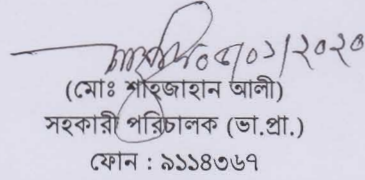 ০৫/০১/২০২০
(মোঃ শাহজাহান আলী)
সহকারী পরিচালক (ভা.প্রা.)
ফোন : ৯১১৪৩৬৭